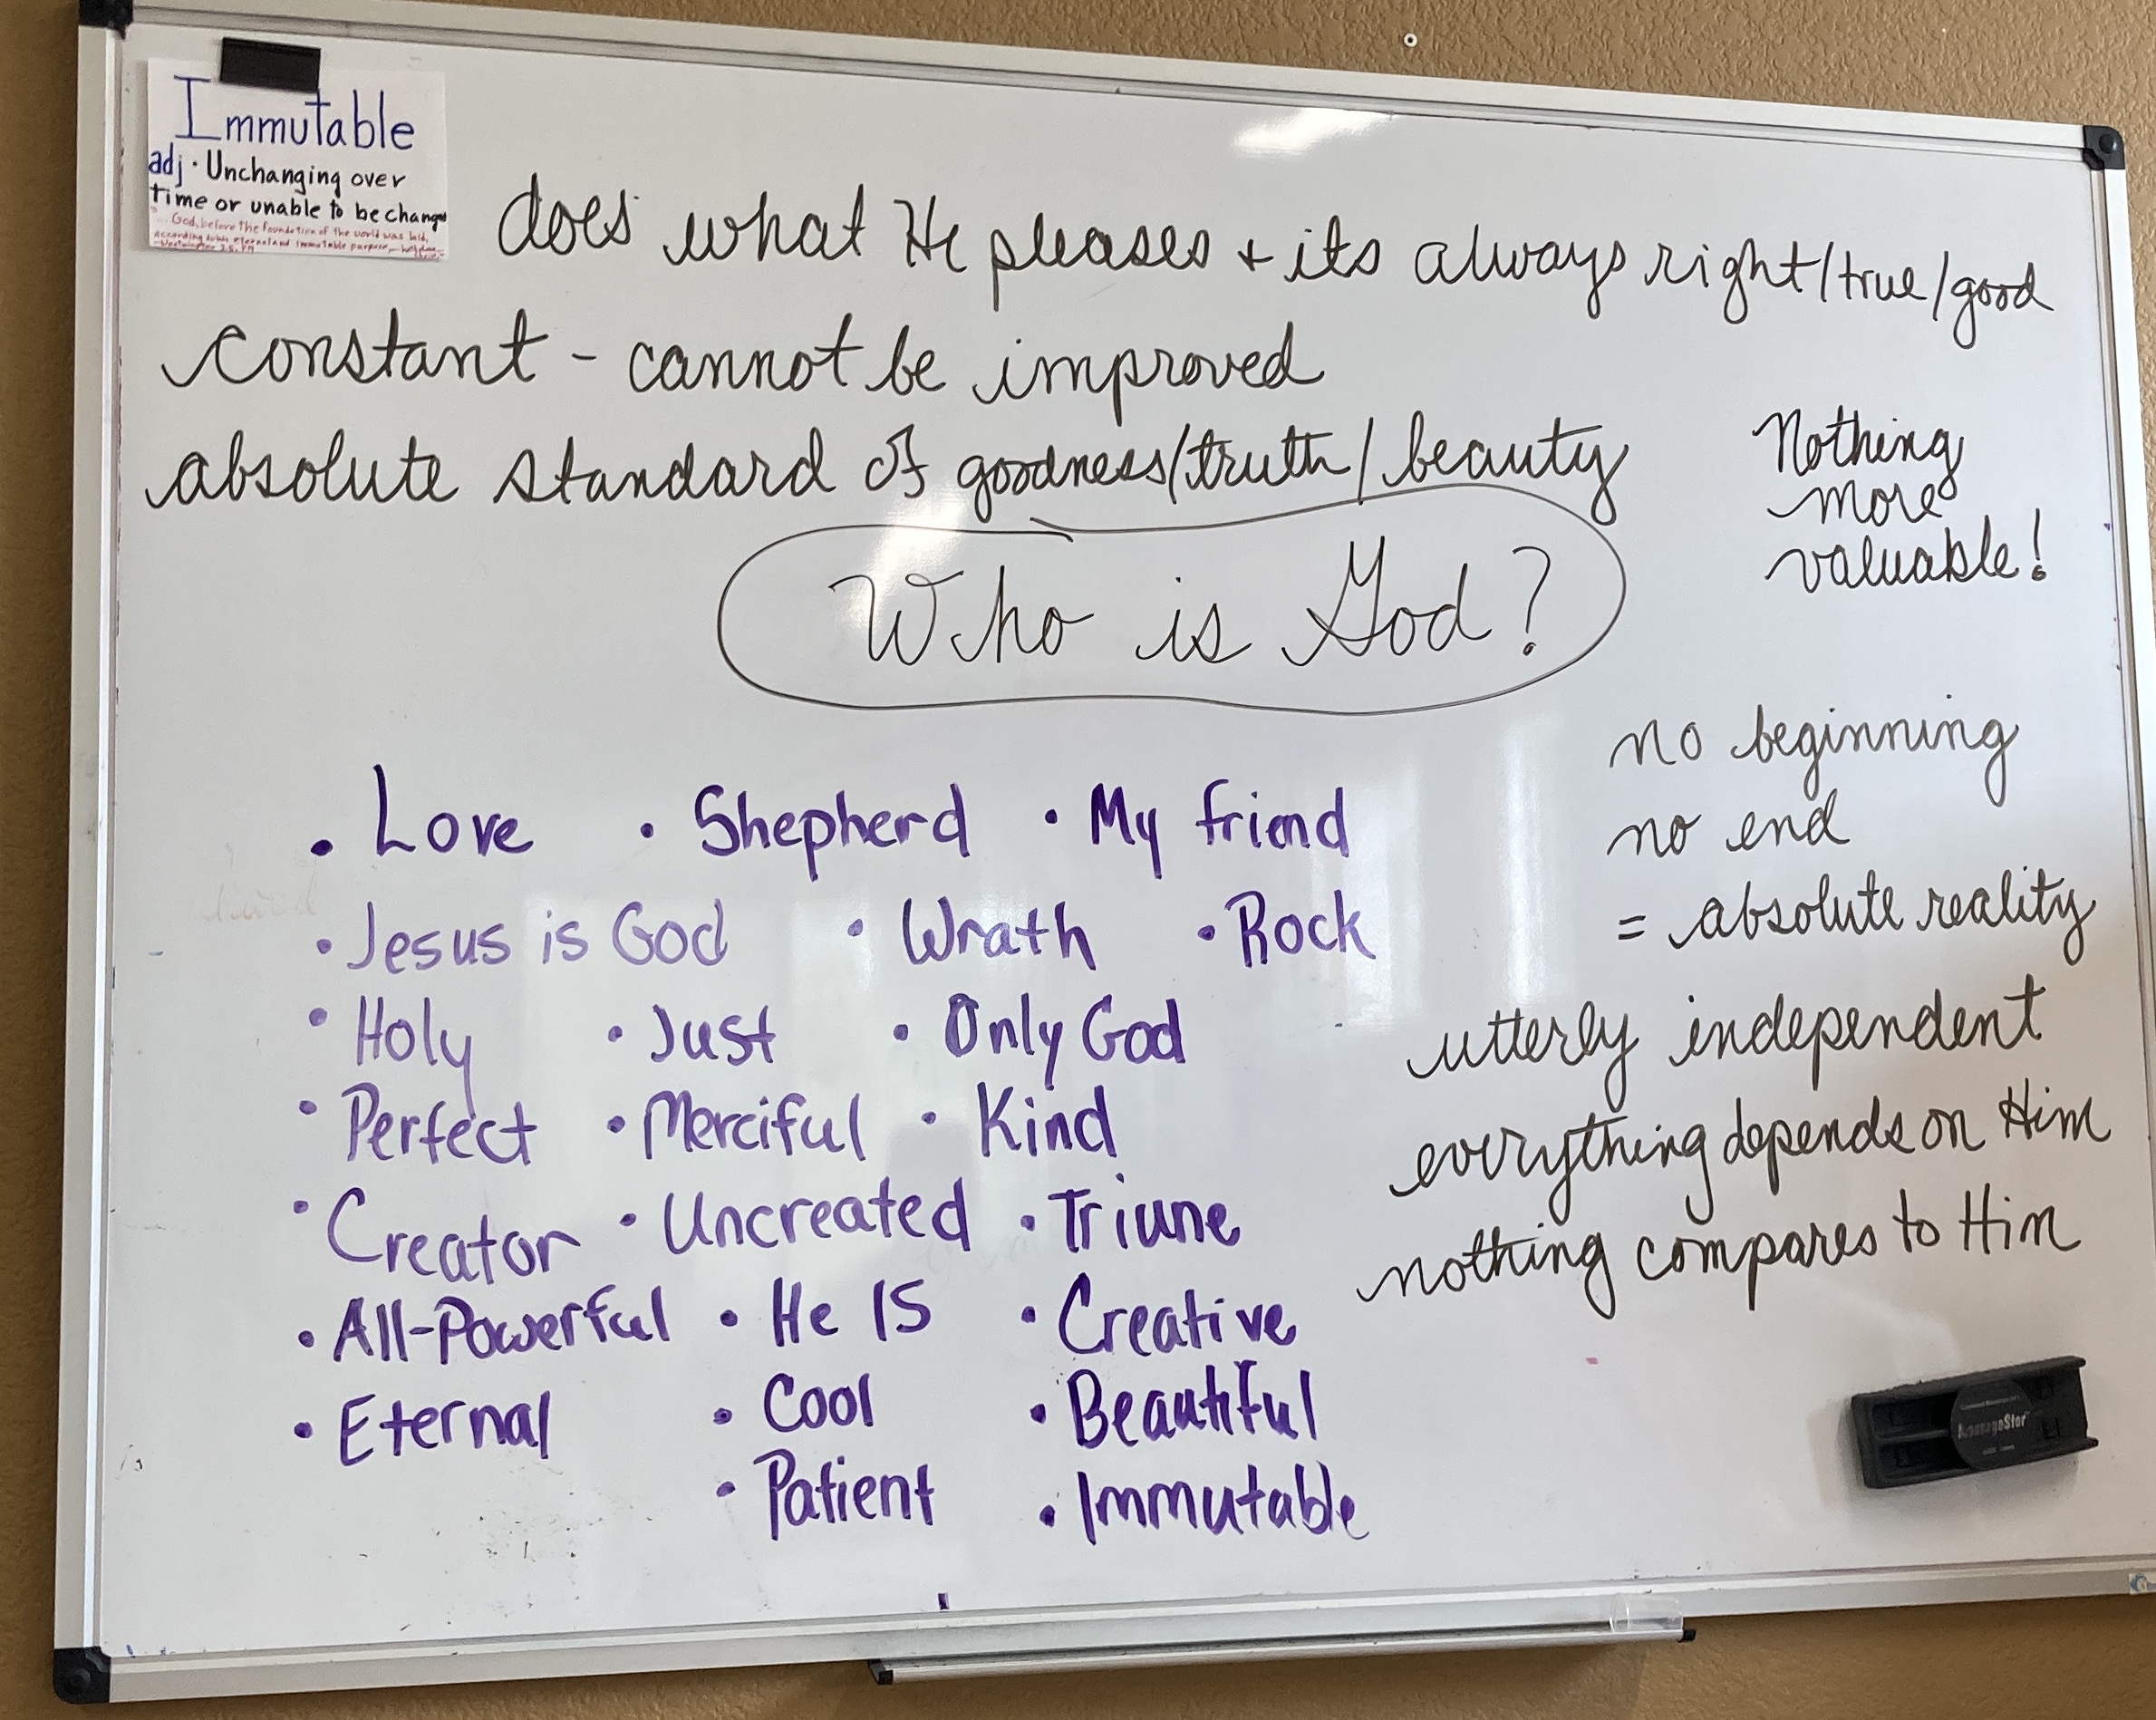 Immutable
adj · Unchanging over
time or unable to be changed
God, before the foundation of the world was laid,
According to his eternal and immutable purpose
Westminster
does what He pleases + its always right/true/good
constant - cannot be improved
absolute standard of goodness/truth/beauty
Nothing
more
valuable!
Who is God?
no beginning
no end
= absolute reality
utterly independent
everything depends on Him
nothing compares to Him
• Love • Shepherd • My friend
• Jesus is God • Wrath • Rock
• Holy • Just • Only God
• Perfect • Merciful • Kind
• Creator • Uncreated • Triune
• All-Powerful • He IS • Creative
• Eternal • Cool • Beautiful
• Patient • Immutable